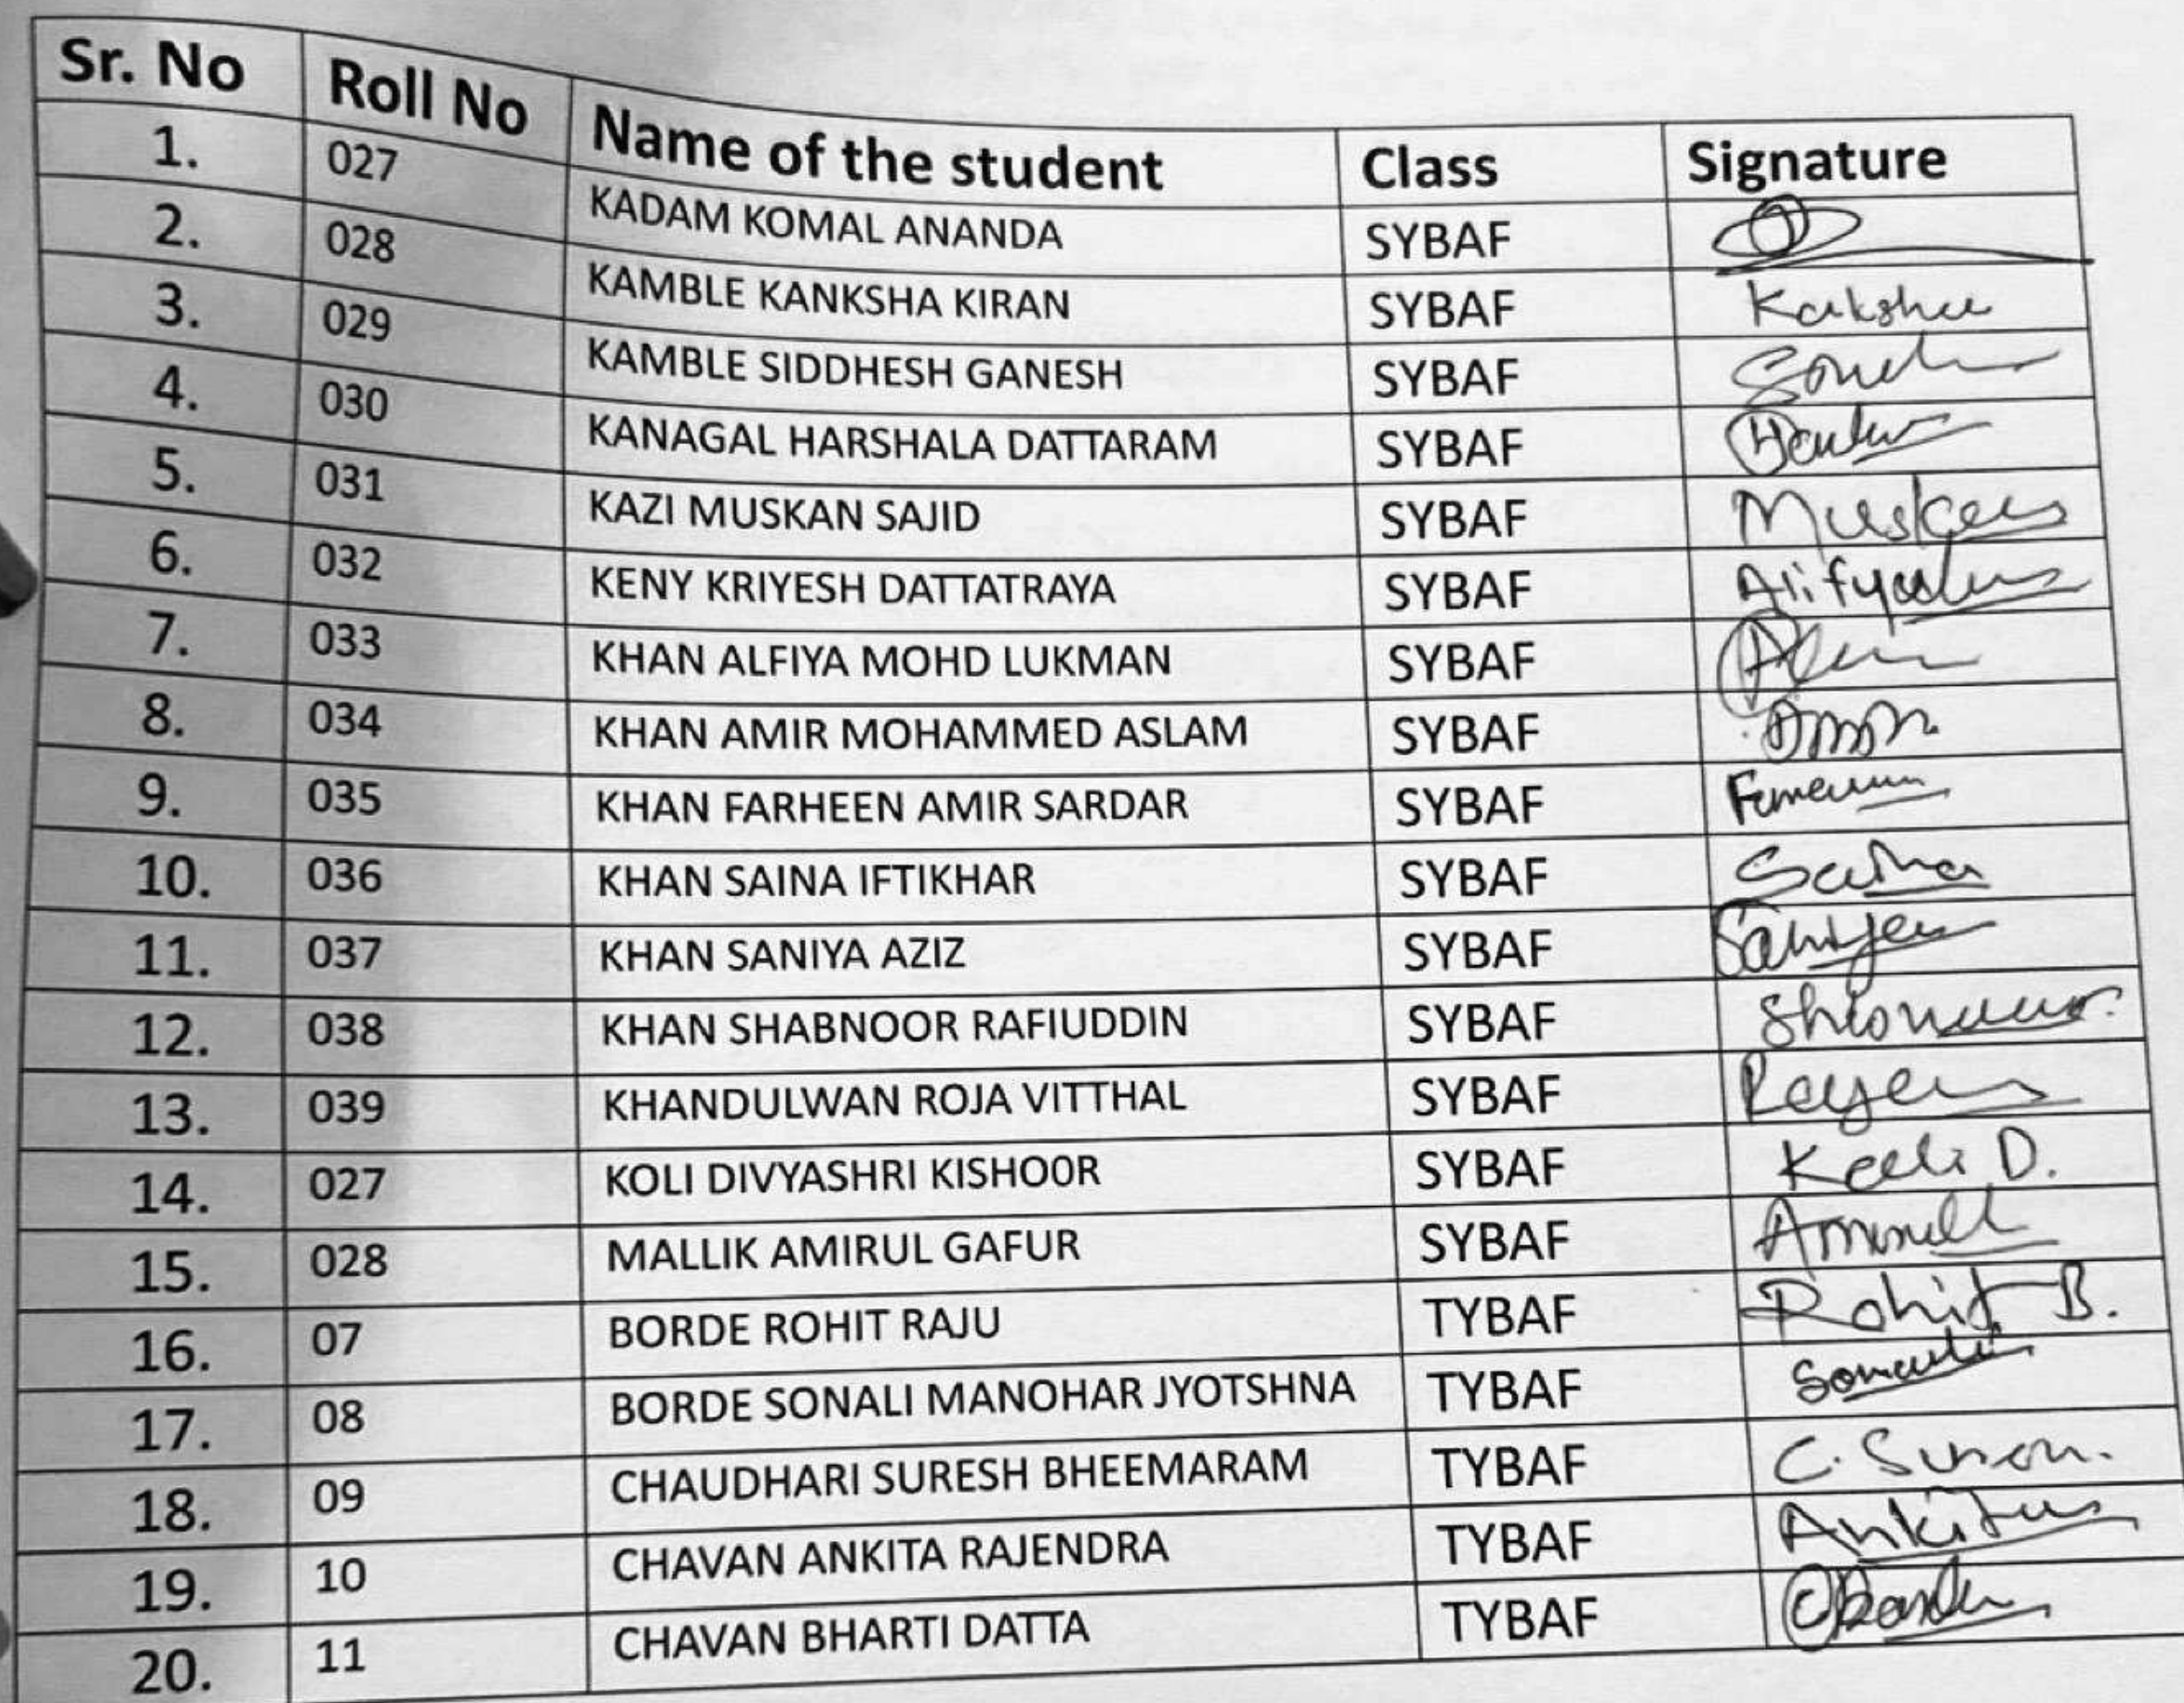 Sr. No Roll No Name of the student Class Signature
1. 027 KADAM KOMAL ANANDA SYBAF
2. 028 KAMBLE KANKSHA KIRAN SYBAF
3. 029 KAMBLE SIDDHESH GANESH SYBAF
4. 030 KANAGAL HARSHALA DATTARAM SYBAF
5. 031 KAZI MUSKAN SAJID SYBAF
6. 032 KENY KRIYESH DATTATRAYA SYBAF
7. 033 KHAN ALFIYA MOHD LUKMAN SYBAF
8. 034 KHAN AMIR MOHAMMED ASLAM SYBAF
9. 035 KHAN FARHEEN AMIR SARDAR SYBAF
10. 036 KHAN SAINA IFTIKHAR SYBAF
11. 037 KHAN SANIYA AZIZ SYBAF
12. 038 KHAN SHABNOOR RAFIUDDIN SYBAF
13. 039 KHANDULWAN ROJA VITTHAL SYBAF
14. 027 KOLI DIVYASHRI KISHOOR SYBAF
15. 028 MALLIK AMIRUL GAFUR SYBAF
16. 07 BORDE ROHIT RAJU TYBAF Rohit B.
17. 08 BORDE SONALI MANOHAR JYOTSHNA TYBAF
18. 09 CHAUDHARI SURESH BHEEMARAM TYBAF
19. 10 CHAVAN ANKITA RAJENDRA TYBAF
20. 11 CHAVAN BHARTI DATTA TYBAF